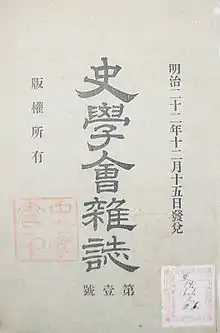 明治二十二年十二月十五日發兌
史學會雜誌
第壹號
版權所有